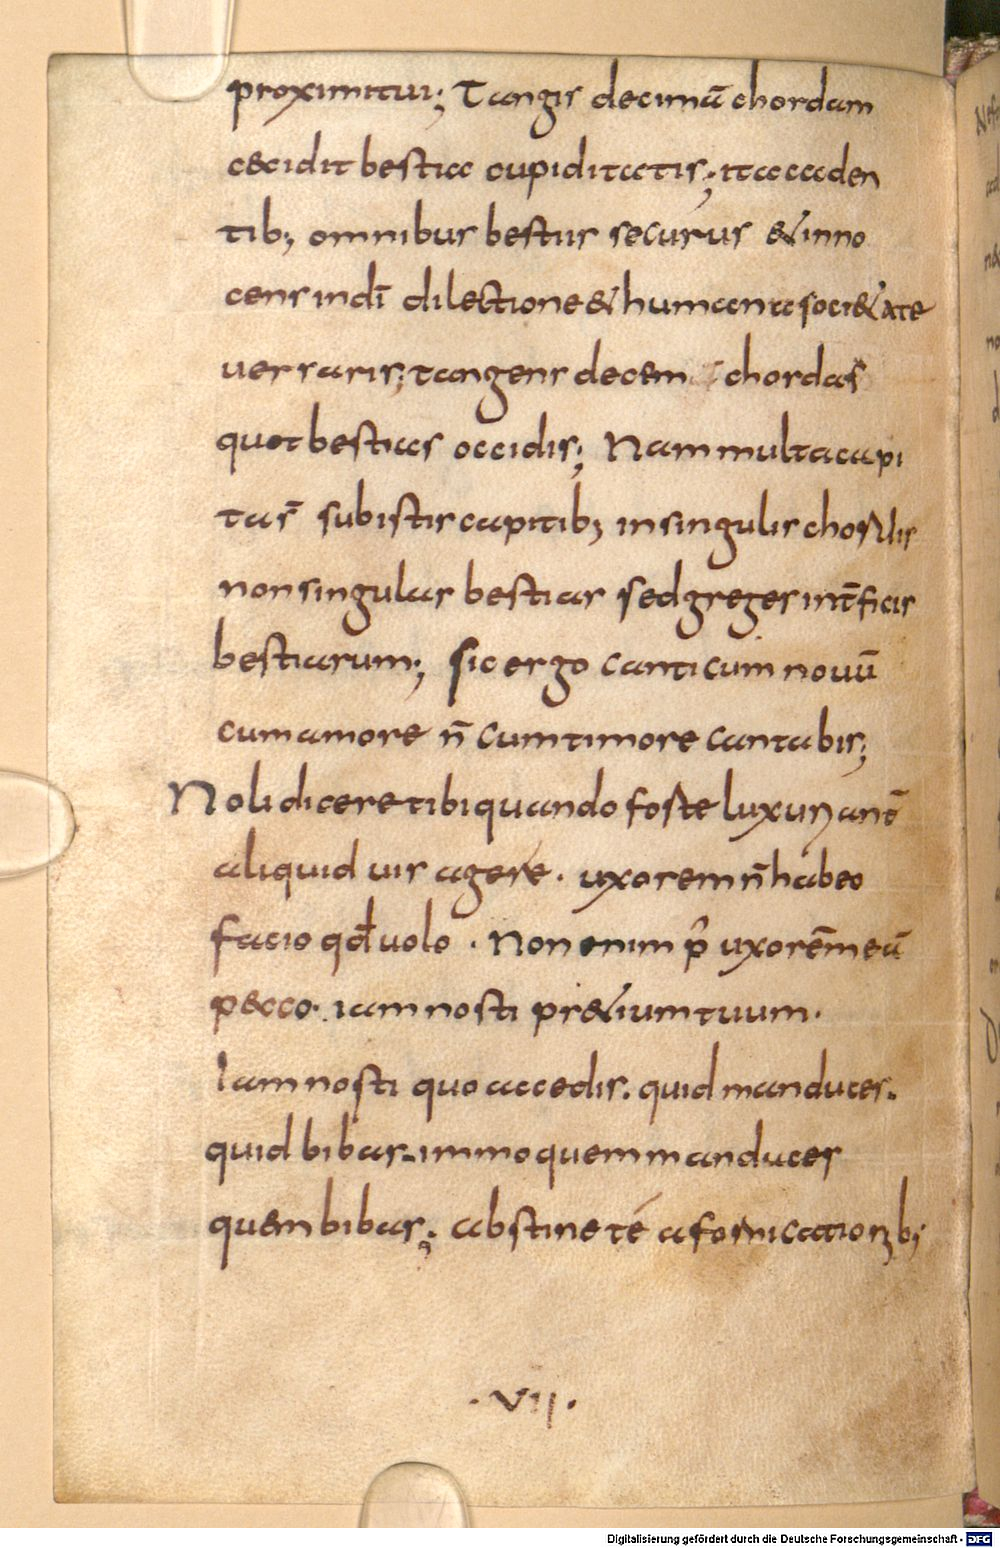 proximi tui; Tangis decimā chordam
cecidit bestia cupiditatis; ita caden
tib; omnibus bestiis securus & inno
cens in dī dilectione & humana soci&ate
uersaris; tangens decem chordas
quot bestias occidis; Nam multa capi
ta s̄ sub istis capitib; in singulis chordis
non singulas bestias sed greges int̄ficis
bestiarum; Sic ergo canticum nouū
cum amore n̄ cum timore cantabis;
Noli dicere tibi quando foste luxuriant̄
aliquid uis agere. uxorem n̄ habeo
facio qđ uolo. Non enim p̄ uxorē meā
pecco. iam nosti pr&ium tuum.
Iam nosti quo accedis. quid manduces.
quid bibas. immo quem manduces
quem bibas; abstine té a fornicationib;
. VII .
Digitalisierung gefördert durch die Deutsche Forschungsgemeinschaft - DFG